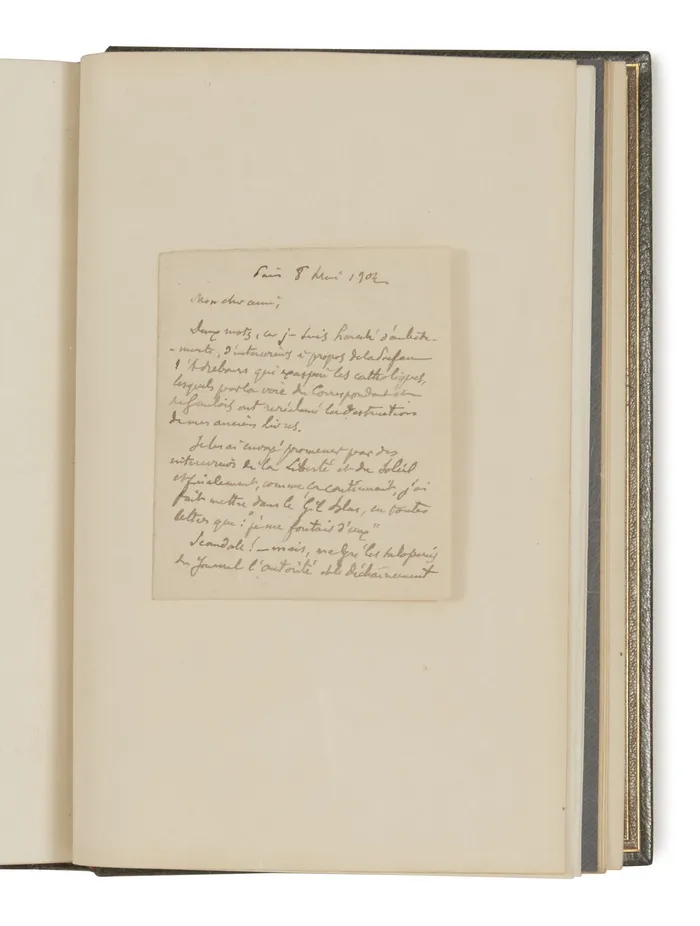 Paris 8 Mai 1904
Mon cher ami,
Deux mots, car je suis harcelé d'embête-
-ments, d'interviews à propos de la Préface
d'A rebours qui exaspère les catholiques,
lesquels par la voix du Correspondant
Gaulois ont réclamé la destruction
de mes anciens livres.
Je les ai envoyé promener par des
interviews de la Liberté et du Soleil
et finalement, comme ça continuait, j'ai
fait mettre dans le Gil Blas, en toutes
lettres que: "je me foutais d'eux"
Scandale! – mais, malgré les saloperies
du Journal l'autorité et le déchaînement